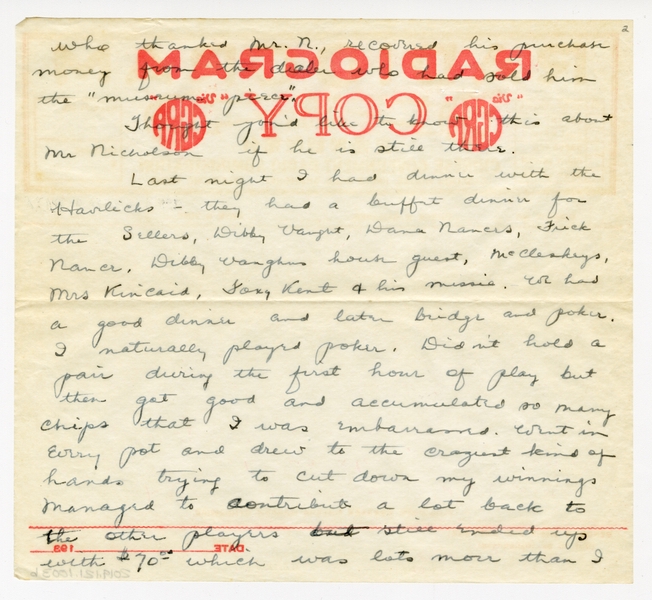 2
who thanked Mr. N., recovered his purchase
money from the dealer who had sold him
the "museum piece".
Thought you'd like to know this about
Mr Nicholson if he is still there.
Last night I had dinner with the
Havlicks - they had a buffet dinner for
the Sellers, Dibby Vaught, Dana Nances, Frick
Nance, Dibby Vaughns house guest, McCleskeys,
Mrs Kincaid, Foxy Kent & his missie. We had
a good dinner and later bridge and poker.
I naturally played poker. Didn't hold a
pair during the first hour of play but
then got good and accumulated so many
chips that I was embarrassed. Went in
every pot and drew to the craziest kind of
hands trying to cut down my winnings
Managed to contribute a lot back to
the other players but still ended up
with $70.00 which was lots more than I
RADIOGRAM
"Via" CGRA COPY "Via" CGRA
DATE 193